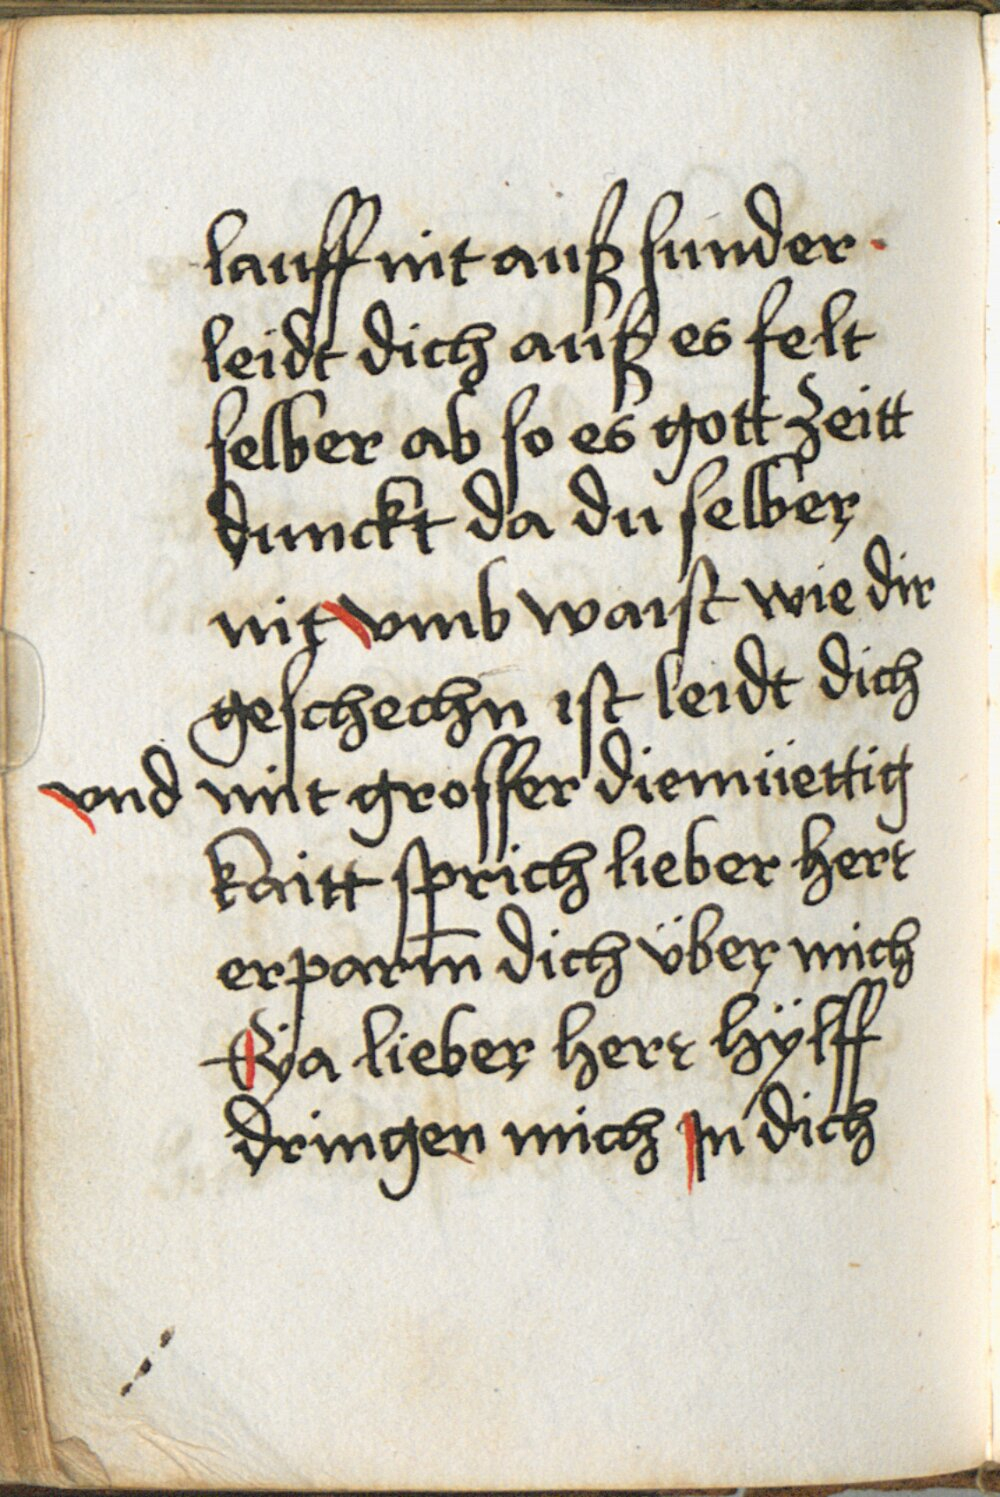 lauff nit auß sunder
leidt dich auß es felt
selber ab so es gott zeitt
dunckt da du selber
nit vmb waist wie dir
geschechn ist leidt dich
vnd mit grosser diemüettig
kaitt sprich lieber herr
erparm̄ dich über mich
Eÿa lieber herr hÿlff
dringen mich jn dich